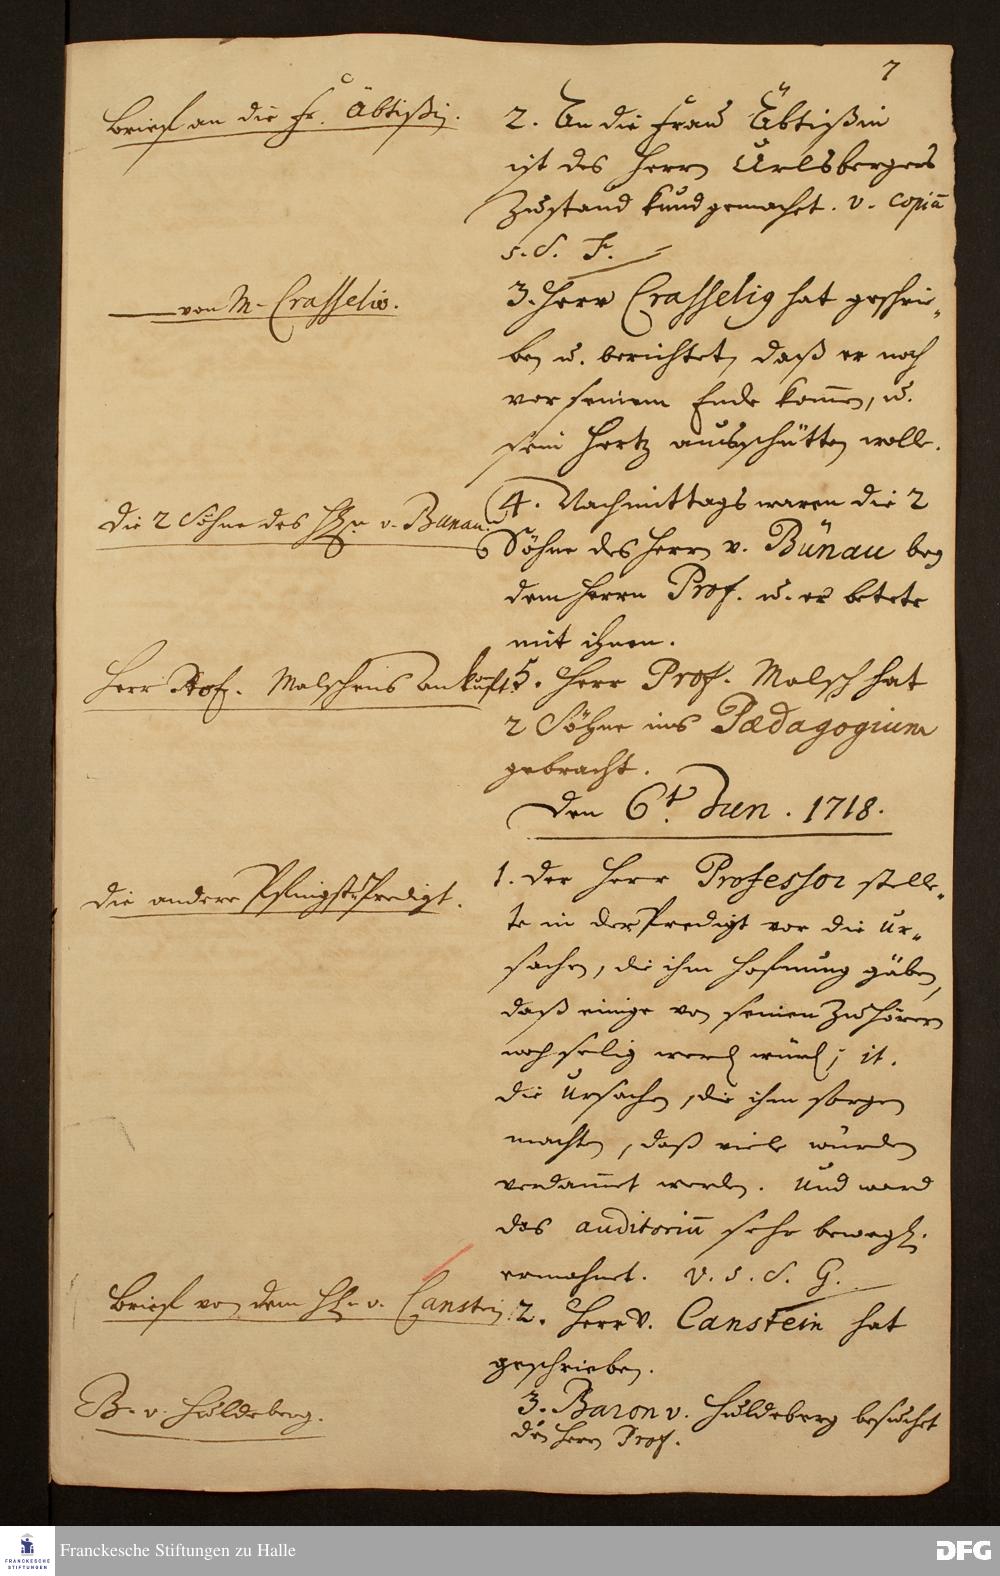 7
Brief an die Fr. Äbtißin.
2. An die Frau Äbtißin
ist des Herrn Urlsbergers
Zustand kund gemachet. v. copiā
s. S. F.
von M. Crasselio.
3. Herr Crasselig hat geschrie„
ben u. berichtet, daß er noch
vor seinem Ende komēn, u.
sein Hertz ausschütten wolle.
Die 2 Söhne des Hn. v. Bünau.
4. Nachmittags waren die 2
Söhne des Herrn v. Bünau bey
dem Herrn Prof. u. er betete
mit ihnen.
Herr Prof. Malschens ankunft.
5. Herr Prof. Malsch hat
2 Söhne ins Pædagogium
gebracht.
Den 6t. Jun. 1718.
die andere PfingstPredigt.
1. der Herr Professor stelle„
te in der Predigt vor die Ur„
sachen, die ihm Hofnung gäben,
daß einige von seinen Zuhörern
noch selig werd würd; it.
die Ursachen, die ihm sorgen
machten, daß viele würden
verdam̄et werden. Und ward
das auditoriū sehr bewegl.
ermahnet. v. s. S. G.
Brief von dem Hn. v. Canstein
2. Herr v. Canstein hat
geschrieben.
B. v. Huldeberg.
3. Baron v. Huldeberg besuchet
den Herrn Prof.
FRANCKESCHE
STIFTUNGEN
Franckesche Stiftungen zu Halle
DFG